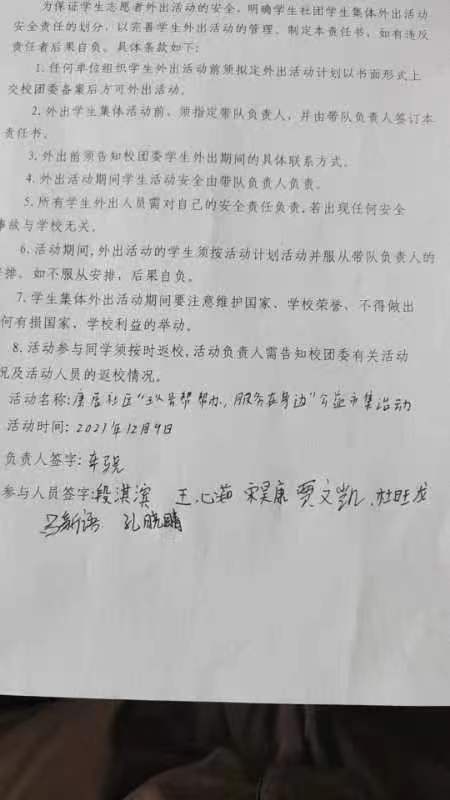 为保证学生志愿者外出活动的安全，明确学生社团学生集体外出活动
安全责任的划分，以完善学生外出活动的管理。制定本责任书，如有违反
责任者后果自负。具体条款如下：
1.任何单位组织学生外出活动前须拟定外出活动计划以书面形式上
交校团委备案后方可外出活动。
2.外出学生集体活动前、须指定带队负责人，并由带队负责人签订本
责任书。
3.外出前须告知校团委学生外出期间的具体联系方式。
4.外出活动期间学生活动安全由带队负责人负责。
5.所有学生外出人员需对自己的安全责任负责,若出现任何安全
事故与学校无关。
6.活动期间,外出活动的学生须按活动计划活动并服从带队负责人的
排。如不服从安排，后果自负。
7.学生集体外出活动期间要注意维护国家、学校荣誉、不得做出
何有损国家、学校利益的举动。
8.活动参与同学须按时返校,活动负责人需告知校团委有关活动
况及活动人员的返校情况。
活动名称:康居社区“ 帮帮办，服务在身边”公益市集活动
活动时间：2021年12月9日
负责人签字:车
参与人员签字:段淇滨 王心茹 宋昊康 贾文凯、杜旺龙
新语 孔晓晴